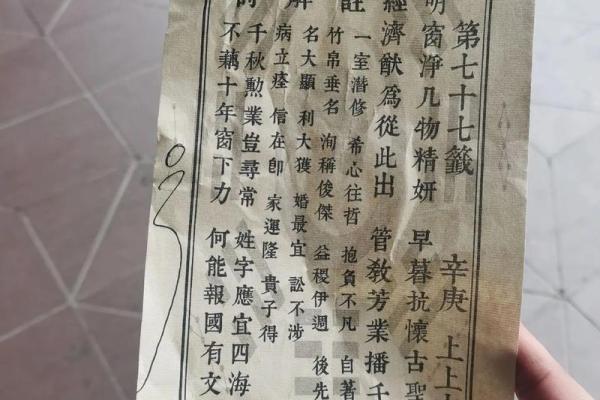 第七十七籤 辛庚 上上
明窗淨几物精妍 早暮抗懷古聖
經濟猷爲從此出 管教芳業播千
註
一室潛修 希心往哲 抱負不凡 自著
竹帛垂名 洵稱俊傑 益稷伊週 後先
解
名大顯 利大獲 婚最宜 訟不涉
病立瘥 信在卽 家運隆 貴子得
千秋勲業豈尋常 姓字應宜四海
不藉十年窗下力 何能報國有文